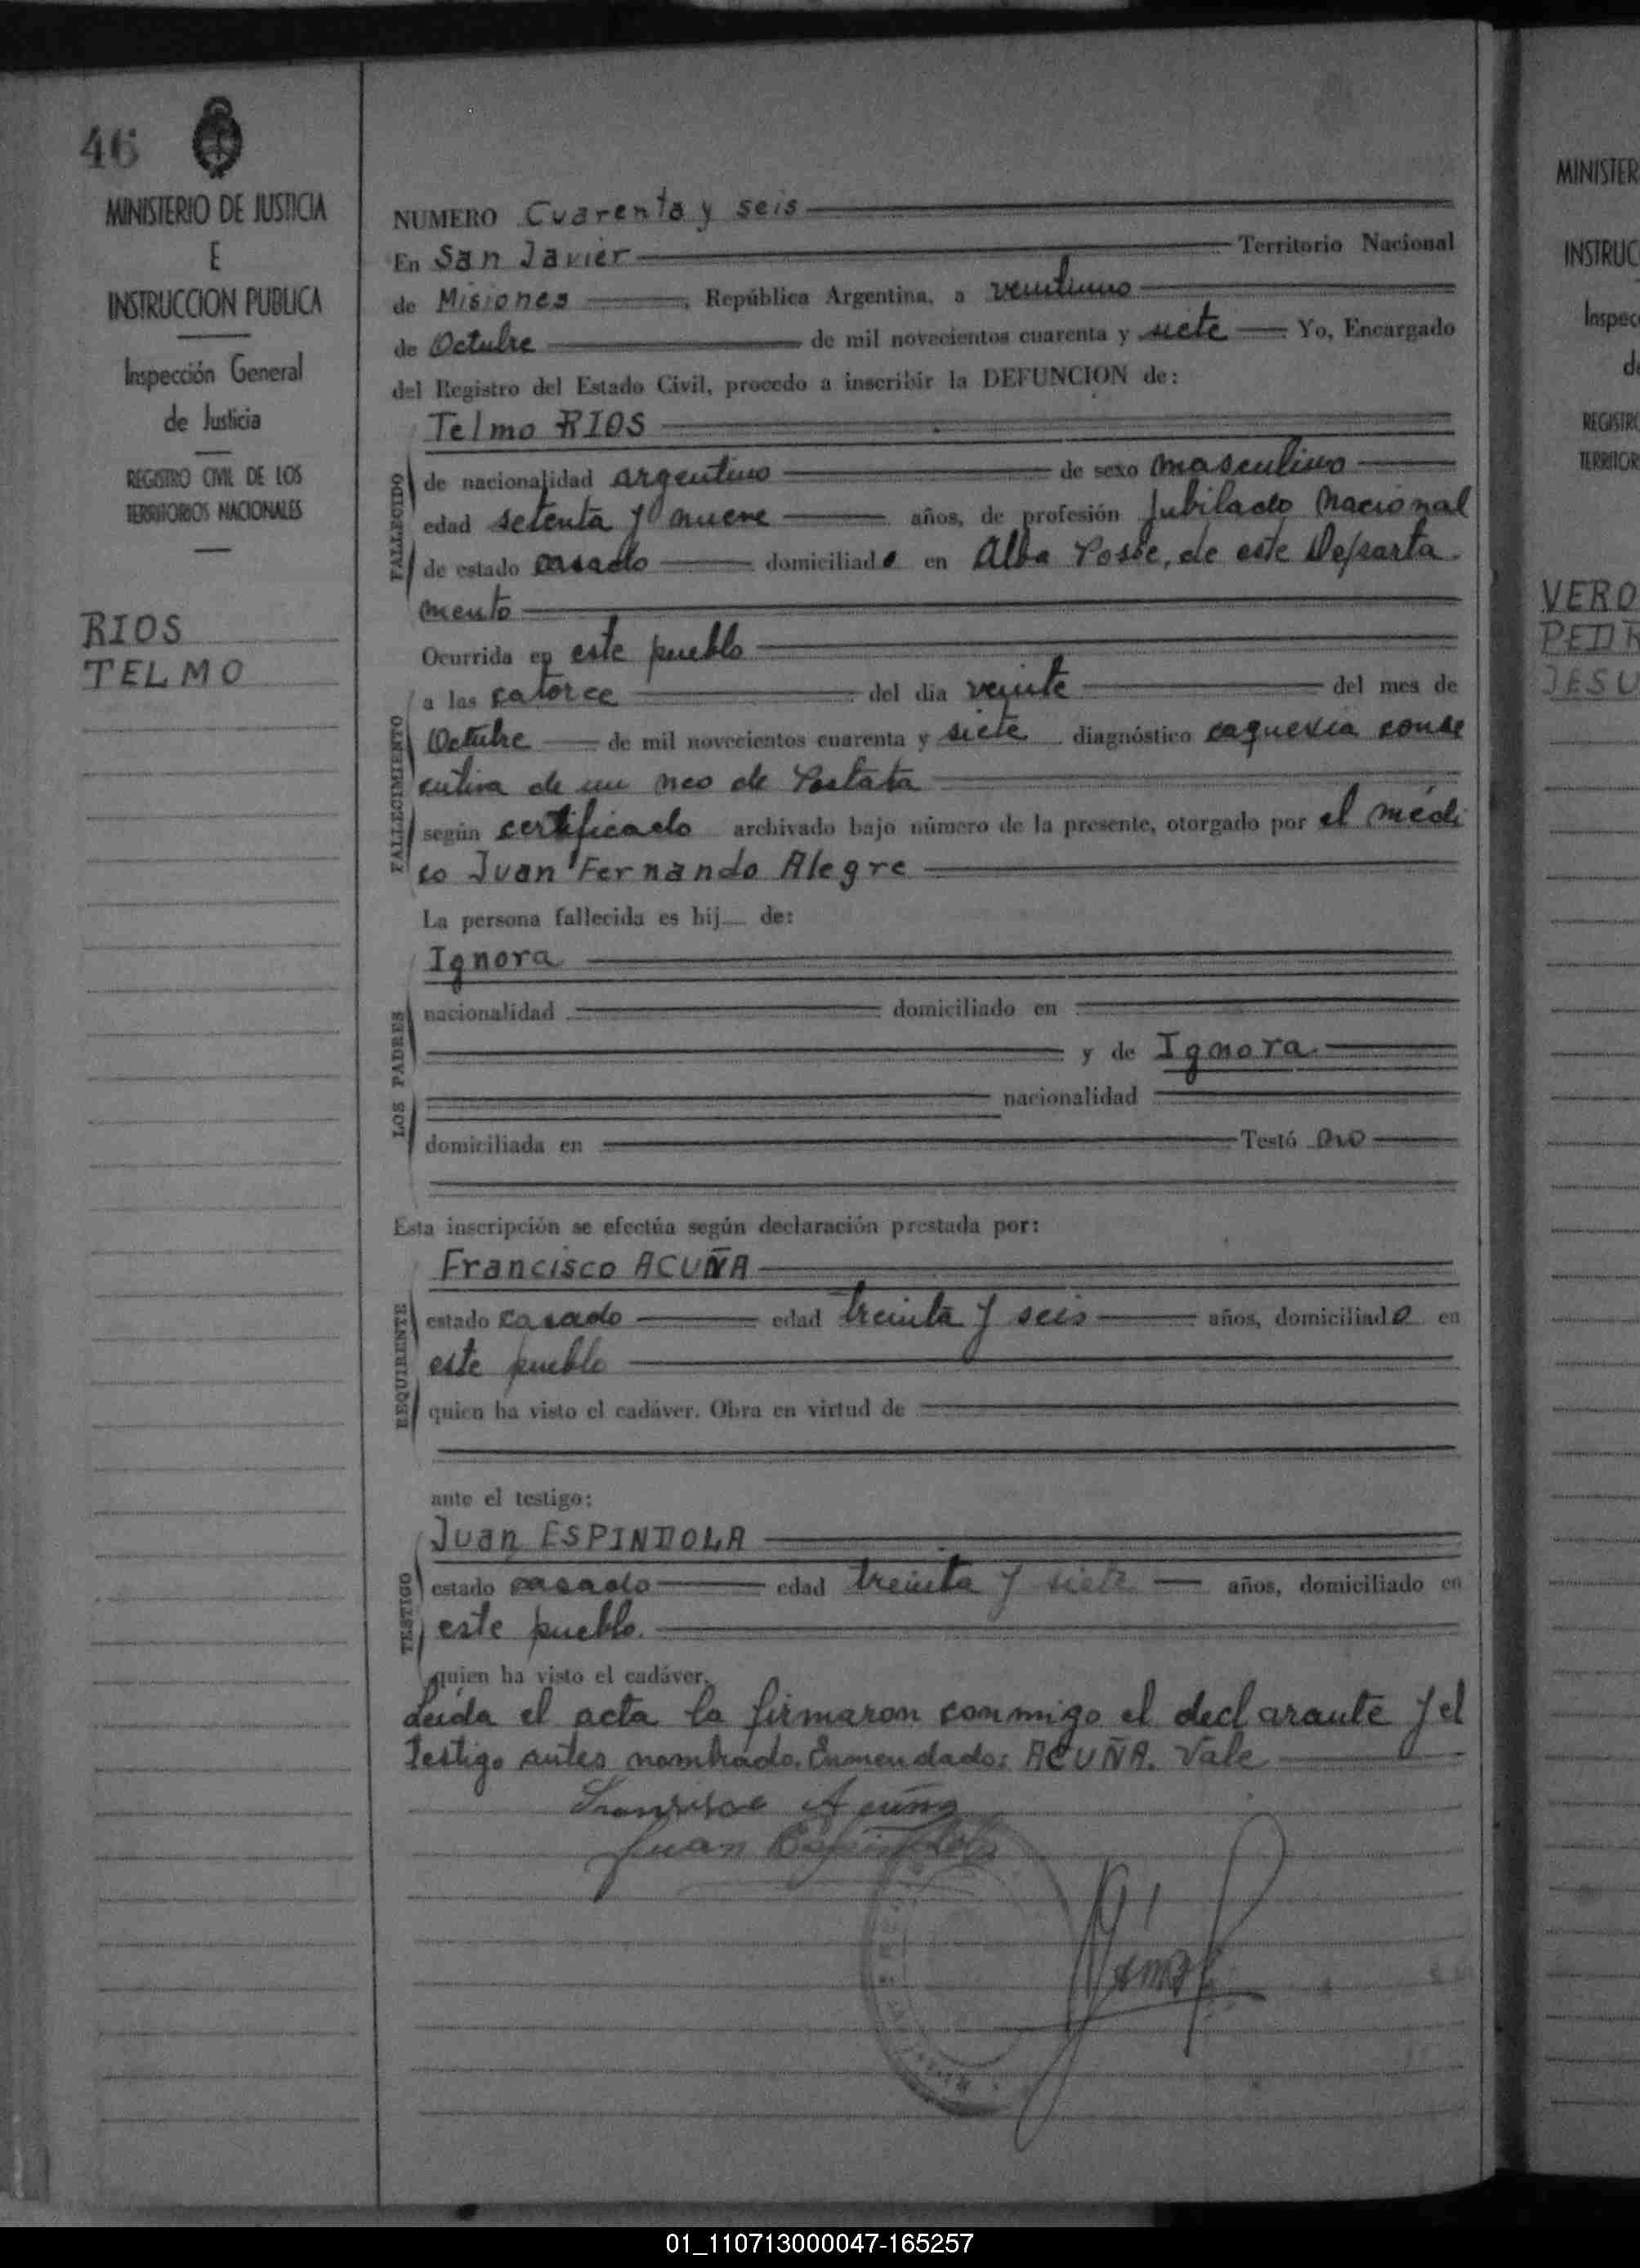 46
MINISTERIO DE JUSTICIA
E
INSTRUCCION PUBLICA
Inspección General
de Justicia
REGISTRO CIVIL DE LOS
TERRITORIOS NACIONALES
RIOS
TELMO
NUMERO Cuarenta y seis
En San Javier Territorio Nacional
de Misiones, República Argentina, a veintiuno
de Octubre de mil novecientos cuarenta y siete Yo, Encargado
del Registro del Estado Civil, procedo a inscribir la DEFUNCION de:
Telmo RIOS
FALLECIDO
de nacionalidad argentino de sexo masculino
edad setenta y nueve años, de profesión Jubilado Nacional
de estado casado domiciliado en Alba Posse, de este Departa
mento
Ocurrida en este pueblo
FALLECIMIENTO
a las catorce del dia veinte del mes de
Octubre de mil novecientos cuarenta y siete diagnóstico caquexia conse
cutiva de un neo de Postata
según certificado archivado bajo número de la presente, otorgado por el médi
co Juan Fernando Alegre
La persona fallecida es hij de:
Ignora
LOS PADRES
nacionalidad domiciliado en
y de Ignora
nacionalidad
domiciliada en Testó no
Esta inscripción se efectúa según declaración prestada por:
Francisco ACUÑA
REQUIRENTE
estado casado edad treinta y seis años, domiciliado en
este pueblo
quien ha visto el cadáver. Obra en virtud de
ante el testigo:
Juan ESPINDOLA
TESTIGO
estado casado edad treinta y siete años, domiciliado en
este pueblo.
quien ha visto el cadáver.
Leida el acta la firmaron conmigo el declarante y el
testigo antes nombrado. Enmendado: ACUÑA. Vale
Francisco Acuña
Juan Espindola
MINISTER
INSTRUC
Inspec
de
REGISTRO
TERRITOR
VERO
PEDR
JESU
01_110713000047-165257